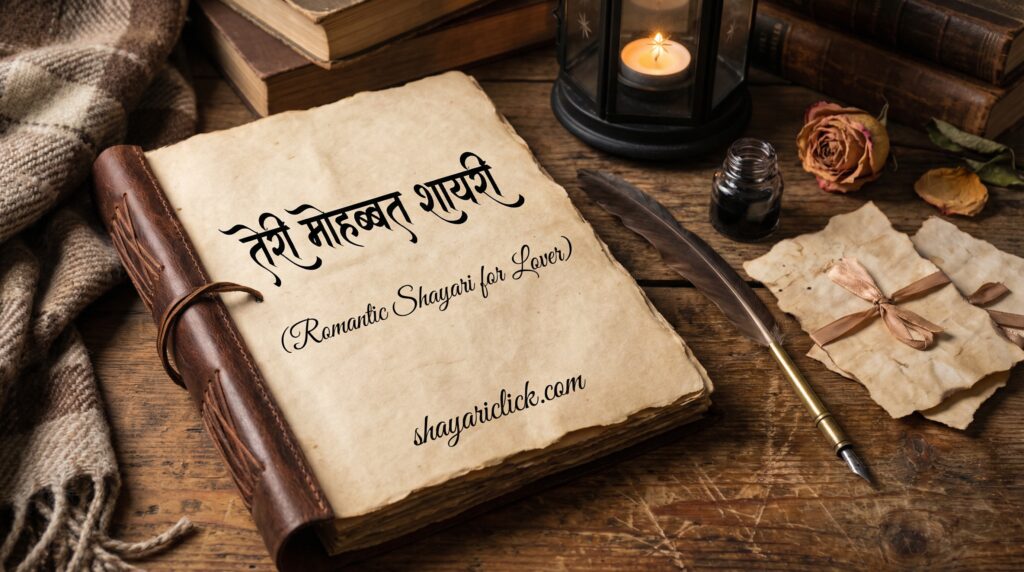 तेरी मोहब्बत शायरी
(Romantic Shayari for Lover)
shayariclick.com